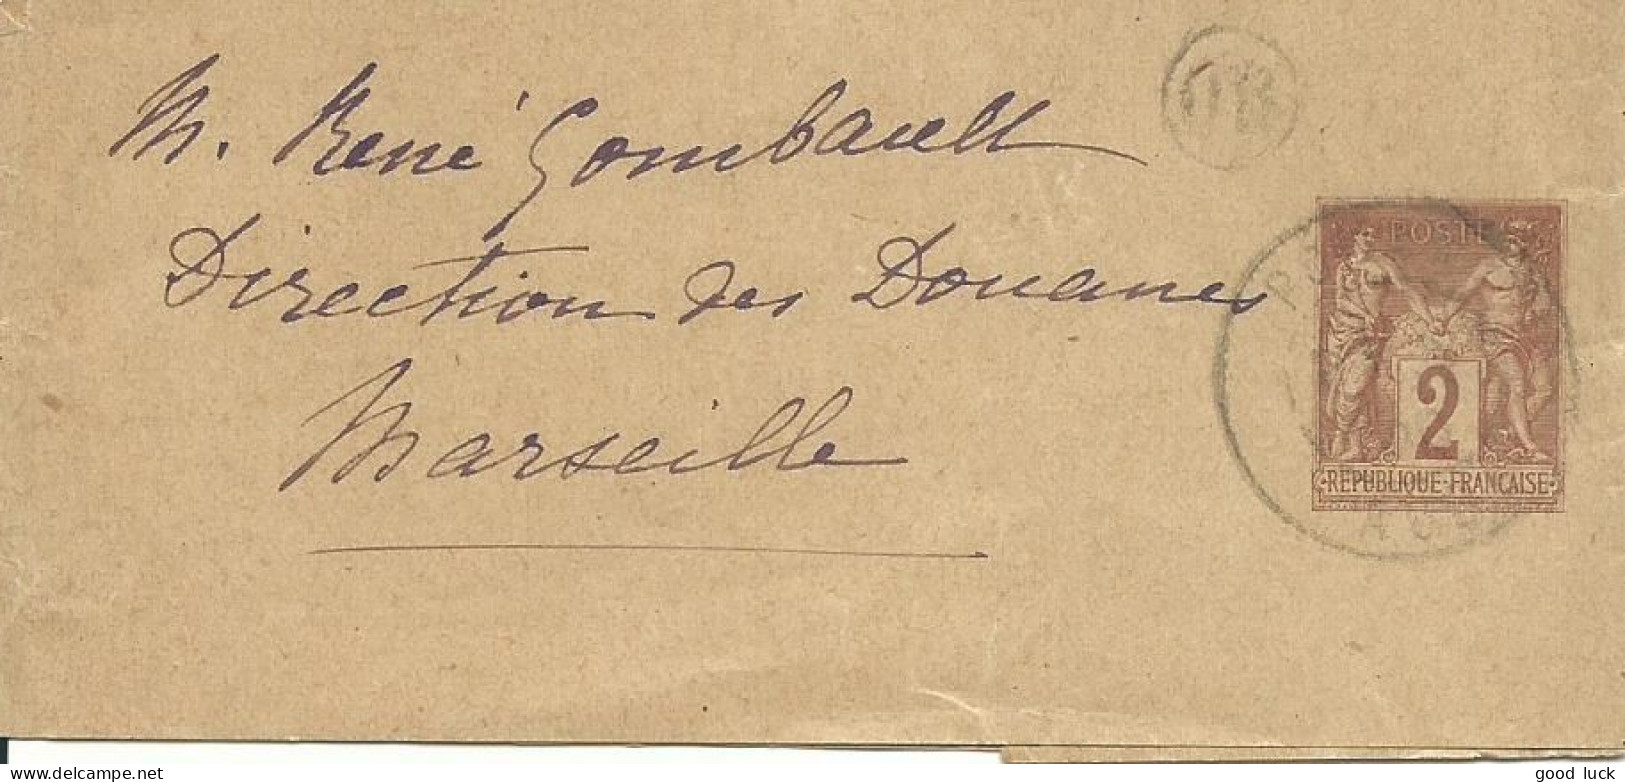 M. René Gombault
Direction des Douanes
Marseille
POSTE
2
REPUBLIQUE FRANCAISE
good luck